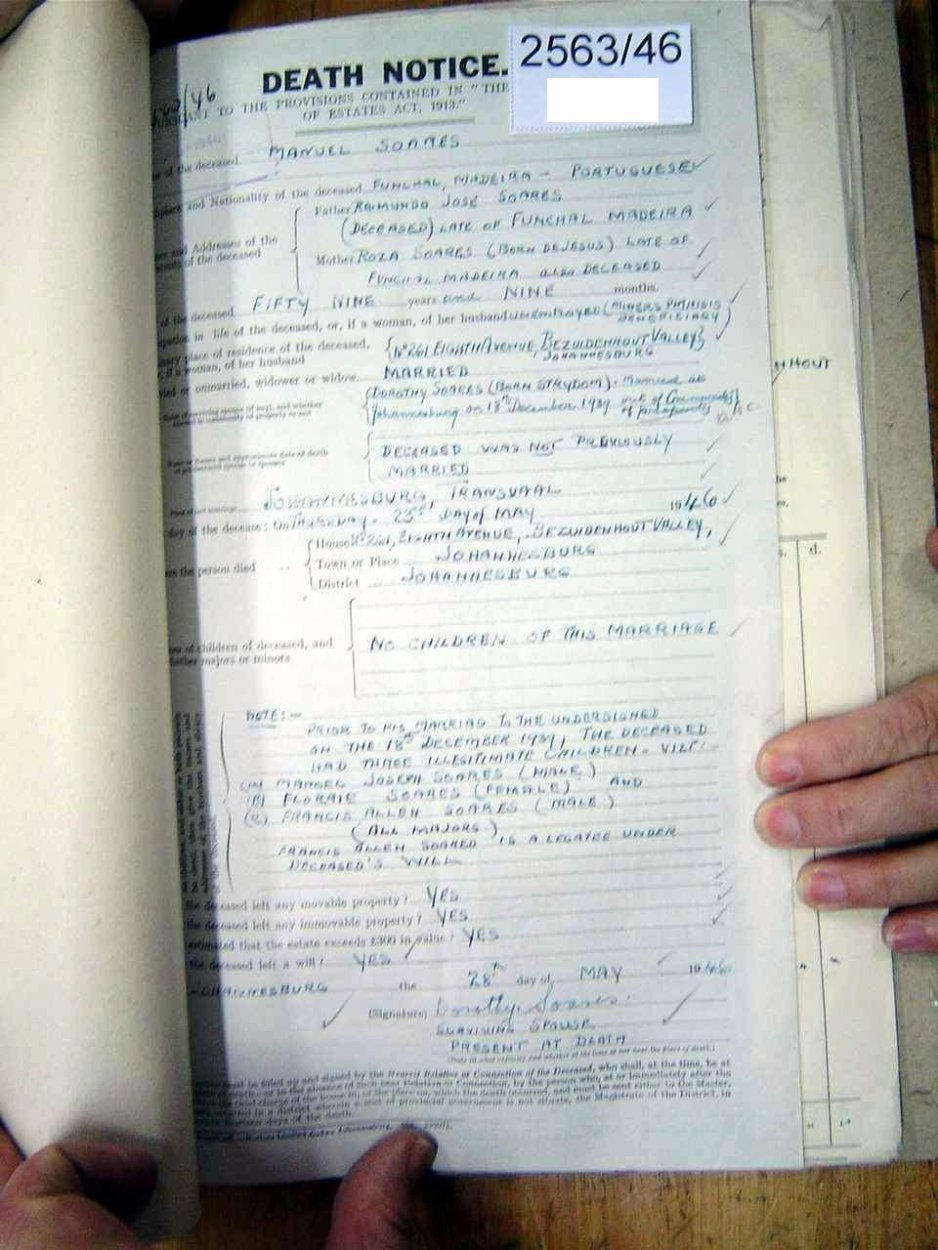 2563/46
/46
DEATH NOTICE.
TO THE PROVISIONS CONTAINED IN "THE
OF ESTATES ACT, 1913."
of the deceased MANUEL SOARES
and Nationality of the deceased FUNCHAL, MADEIRA - PORTUGUESE
Father RAIMUNDO JOSE SOARES
(DECEASED) LATE OF FUNCHAL MADEIRA
and Addresses of the
of the deceased
Mother ROZA SOARES (BORN DEJESUS) LATE OF
FUNCHAL MADEIRA also DECEASED
of the deceased FIFTY NINE years and NINE months.
in life of the deceased, or, if a woman, of her husband UNEMPLOYED (MINERS PHTHISIS
BENEFICIARY)
place of residence of the deceased, {No 261 EIGHTH AVENUE, BEZUIDENHOUT VALLEY}
if a woman, of her husband JOHANNESBURG
or unmarried, widower or widow MARRIED
DOROTHY SOARES (BORN STRYDOM). Married at
Johannesburg on 18th December 1939 out of Community
of property
DECEASED WAS NOT PREVIOUSLY
MARRIED
JOHANNESBURG, TRANSVAAL
day of the decease; On THURSDAY - 23rd Day of MAY 1946
House No 261, EIGHTH AVENUE, BEZUIDENHOUT VALLEY,
the person died Town or Place JOHANNESBURG
District JOHANNESBURG
of children of deceased, and
majors or minors
NO CHILDREN OF THIS MARRIAGE
NOTE:-
PRIOR TO HIS MARRING TO THE UNDERSIGNED
ON THE 18th DECEMBER 1939, THE DECEASED
HAD THREE ILLEGITIMATE CHILDREN - VIZT:-
(A) MANUEL JOSEPH SOARES (MALE)
(B) FLORRIE SOARES (FEMALE) AND
(C) FRANCIS ALLEN SOARES (MALE)
(ALL MAJORS)
FRANCIS ALLEN SOARES IS A LEGATEE UNDER
DECEASED'S WILL
the deceased left any movable property? YES
the deceased left any immovable property? YES
estimated that the estate exceeds £300 in value? YES
the deceased left a will? YES
JOHANNESBURG the 28th day of MAY 1946
(Signature) Dorothy Soares
SURVIVING SPOUSE
PRESENT AT DEATH
must be filled up and signed by the Nearest Relative or Connection of the Deceased, who shall, at the time, be at
of death
fourteen days of the death.
NHOUT
d.